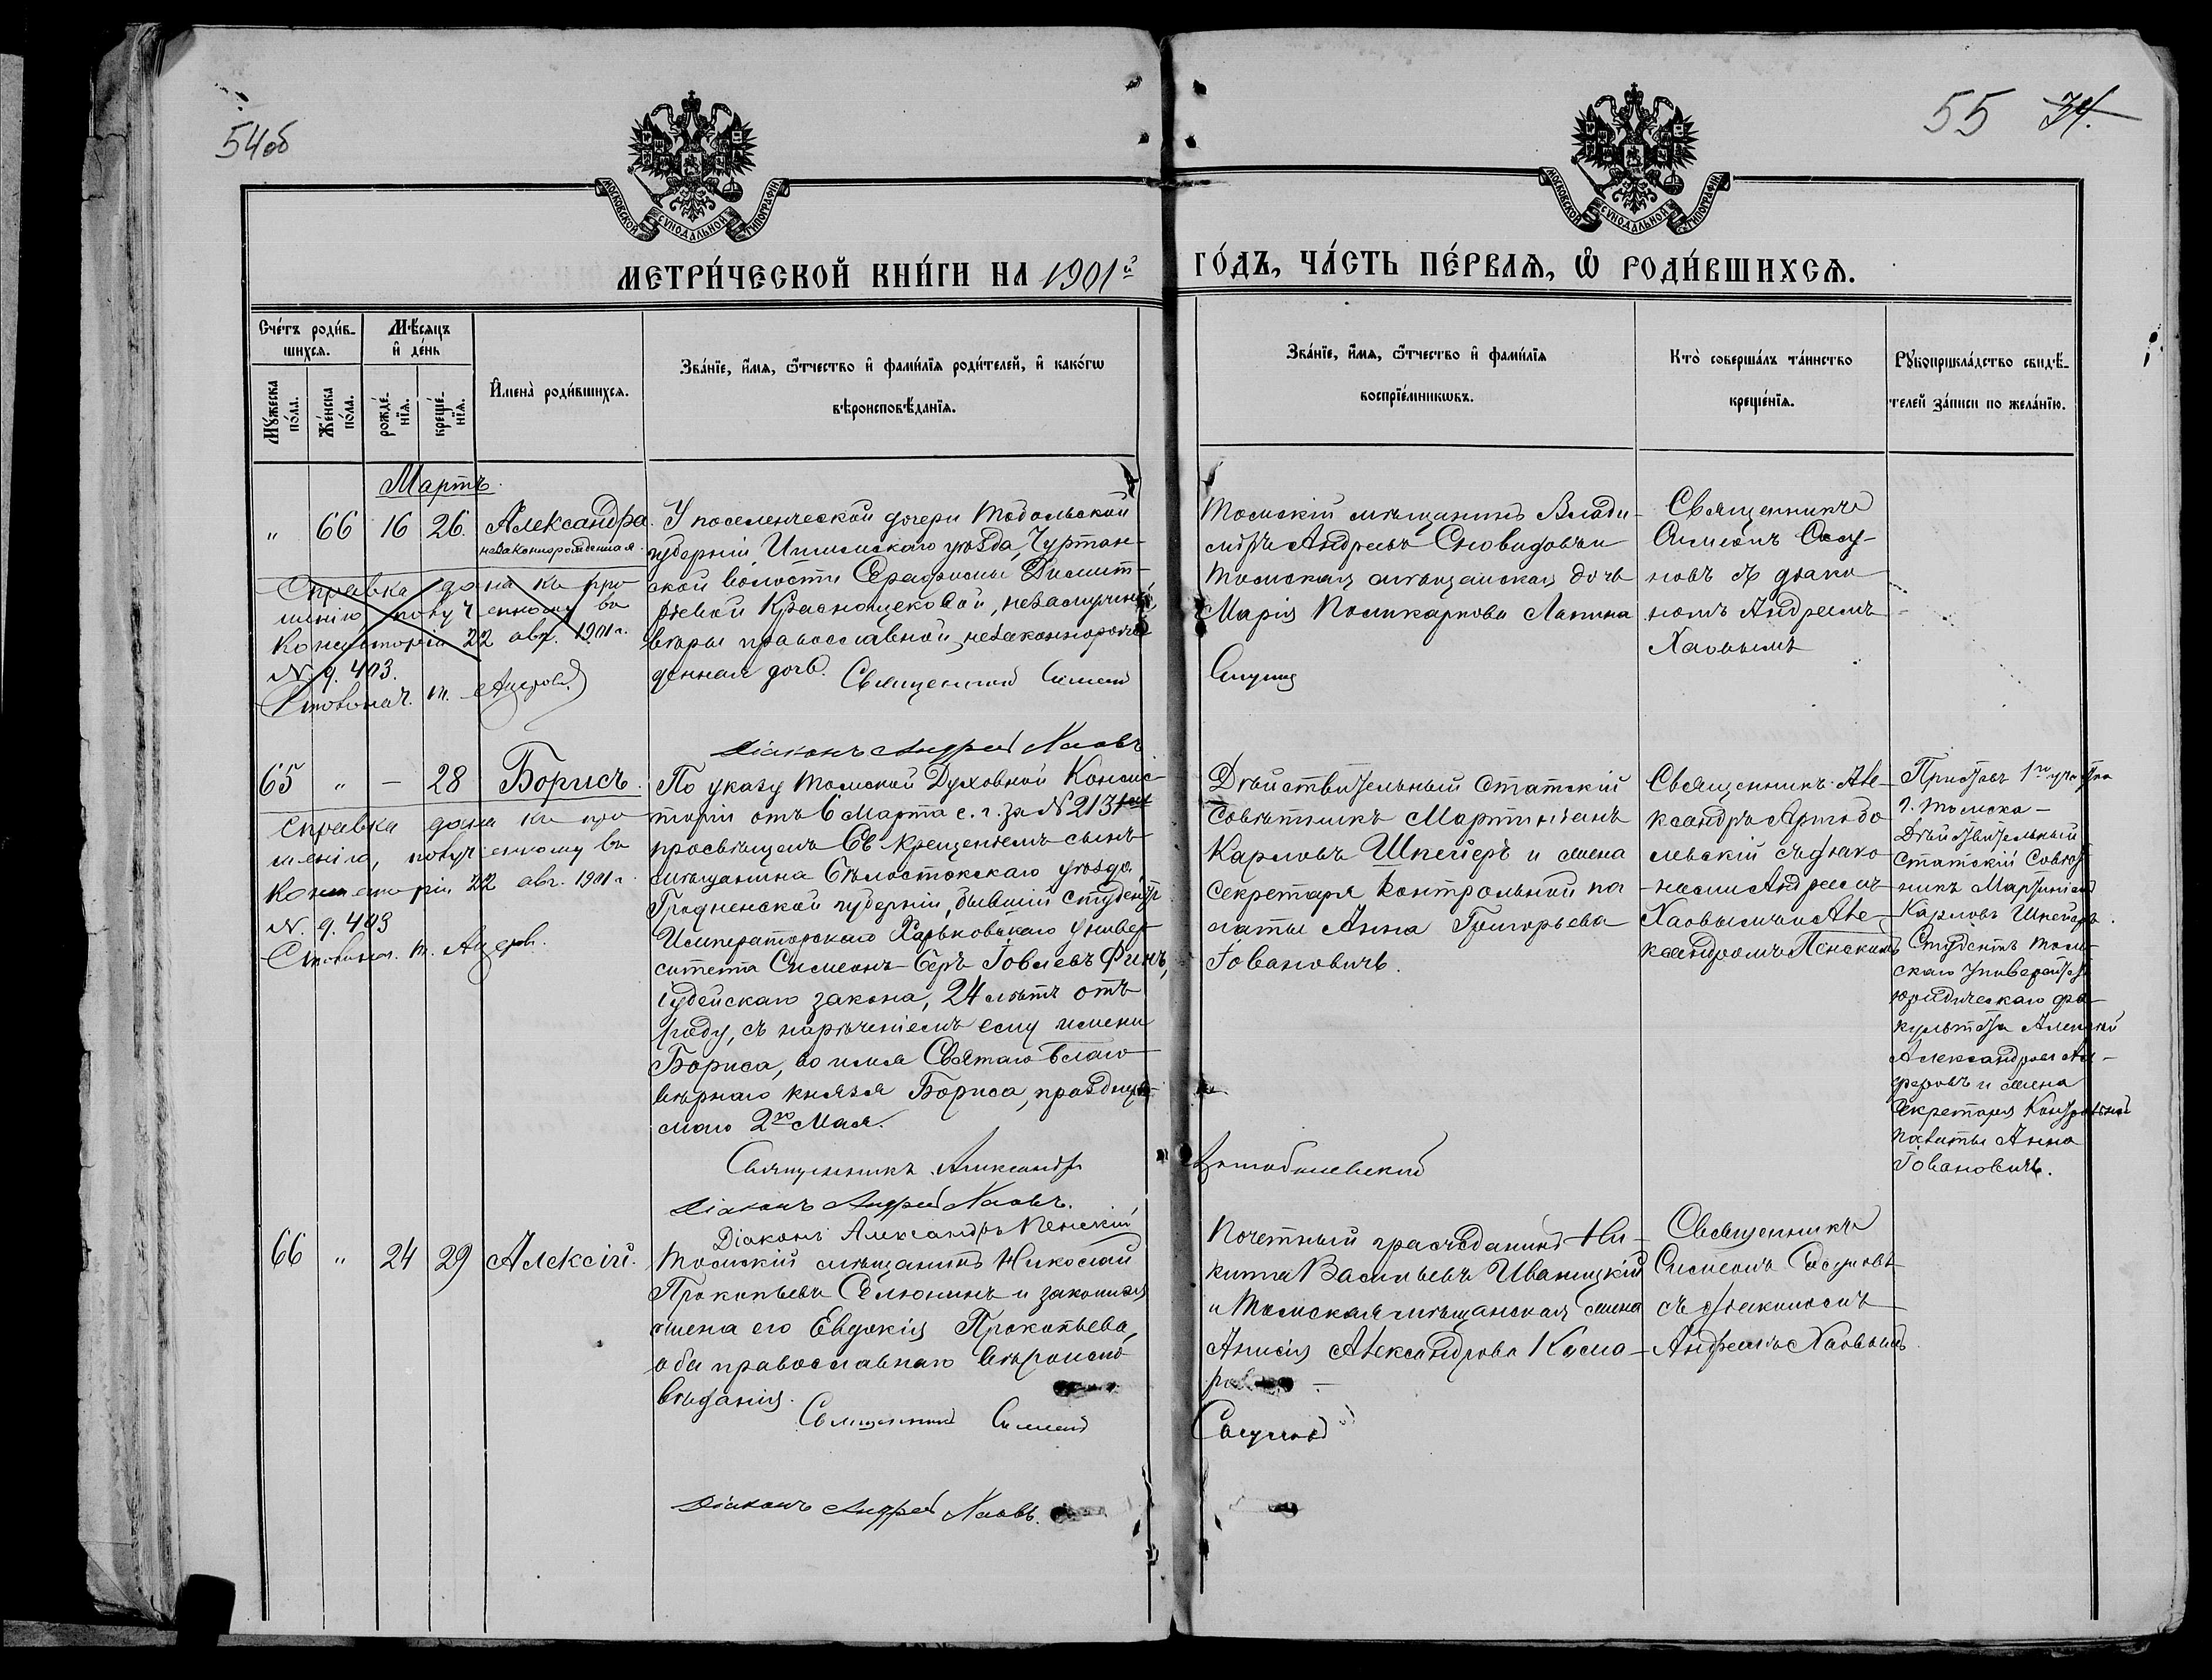 54об
55 34.
МОСКОВСКОЙ СУНОДАЛЬНОЙ ТИПОГРАФІИ
МОСКОВСКОЙ СУНОДАЛЬНОЙ ТИПОГРАФІИ
МЕТРИ́ЧЕСКОЙ КНИ́ГИ НА 1901й ГО́ДЪ, ЧА́СТЬ ПЕ́РВАѦ, Ѡ РОДИ́ВШИХСѦ.
Сче́тъ роди́в-
шихсѧ.
Му́жеска
по́ла.
Же́нска
по́ла.
Мѣ́сѧцъ
и де́нь
рожде́-
нїѧ.
креще́-
нїѧ.
Имена̀ роди́вшихсѧ.
Зва́нїе, и́мѧ, ѻ҆́тчество и фами́лїѧ роди́телей, и како́гѡ
вѣроисповѣ́данїѧ.
Зва́нїе, и́мѧ, ѻ҆́тчество и фами́лїѧ
воспрїе́мникѡвъ.
Кто̀ соверша́лъ та́инство
креще́нїѧ.
Рꙋкоприкла́дство свидѣ́-
телей за́писи по жела́нїю.
Мартъ.
" 66 16 26. Александра.
незаконнорожденная.
У поселенческой дочери Тобольской
губерніи Ишимскаго уѣзда, Чуртан-
ской волости Серафимы Димит-
ріевой Краснощековой, незамужней,
вѣры православной незаконнорож-
денная дочь.
Священникъ Симеонъ
Діаконъ Андрей Хаовъ
Томскій мѣщанинъ Влади-
міръ Андреевъ Сновидовъ и
Томская мѣщанская дочь
Марія Поликарпова Лапина
Священникъ
Симеонъ Сосу-
новъ съ діако-
номъ Андреемъ
Хаовымъ
Справка дана къ про
шенію получ енному въ
Консисторіи 22 авг. 1901 г.
N. 9.403.
Столонач.
65 " – 28 Борисъ.
По указу Томской Духовной Консис-
торіи отъ 6 Марта с. г. за N 2131
просвѣщенъ Св. Крещеніемъ сынъ
мѣщанина Бѣлостокскаго уѣзда,
Гродненской губерніи, бывшій студентъ
Императорскаго Харьковскаго Универ-
ситета Симеонъ-Беръ Іовлевъ Финъ,
іудейскаго закона, 24 лѣтъ отъ
роду, съ нареченіемъ ему имени
Бориса, во имя Святаго Благо-
вѣрнаго князя Бориса, празднуе-
маго 2го Мая.
Священникъ Александръ
Діаконъ Андрей Хаовъ.
Діаконъ Александръ Пенскій
Дѣйствительный Статскій
Совѣтникъ Мартиніанъ
Карловъ Шнейеръ и жена
Секретаря Контрольной па
латы Анна Григорьева
Іовановичъ.
Священникъ Але-
ксандръ Артобо
левскій съ діако
нами Андреемъ
Хаовымъ и Але-
ксандромъ Пенскимъ
Приставъ 1го уча ка
г. Томска –
Дѣйствительный
Статскій Совѣт
никъ Мартиніанъ
Карловъ Шнейеръ.
Студентъ Том-
скаго Университета
юридическаго фа-
культета Алексѣй
Александровъ Ал-
феровъ и жена
Секретаря Контрольной
палаты Анна
Іовановичъ.
Справка дана къ про
шенію, получ енному въ
Консисторіи 22 авг. 1901 г.
N. 9.403
Столонач.
66 " 24 29 Алексій.
Томскій мѣщанинъ Николай
Прокопьевъ Селюнинъ и законная
жена его Евдокія Прокопьева,
оба православнаго вѣроиспо-
вѣданія.
Священникъ Симеонъ
Сосуновъ
Діаконъ Андрей Хаовъ.
Почетный гражданинъ Ни-
кита Васильевъ Иваницкій
и Томская мѣщанская жена
Анисія Александрова Кома-
рова
Священникъ
Симеонъ Сосуновъ
съ діакономъ
Андреемъ Хаовымъ.